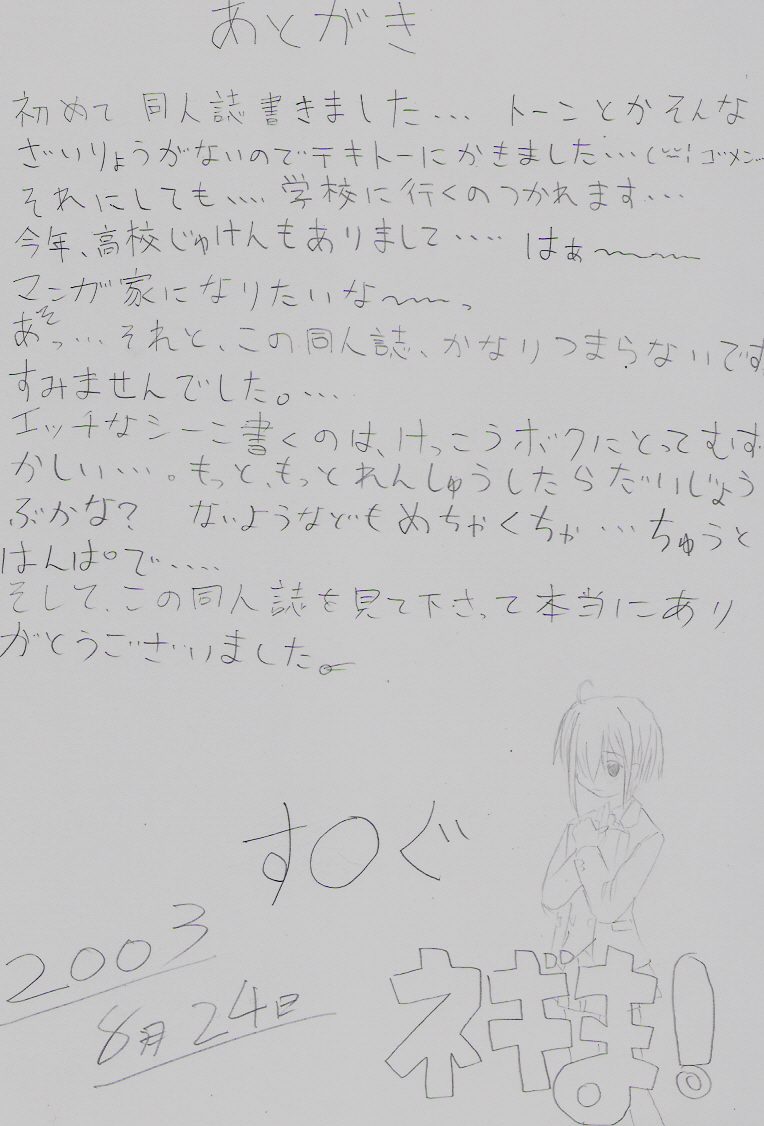 あとがき
初めて 同人誌書きました… トーンとかそんな
ざいりょうがないのでテキトーにかきました… ゴメン…
それにしても…‥ 学校に行くのつかれます…
今年、高校じゅけんもありまして‥‥ はぁ〜〜〜
マンガ家になりたいな〜〜。
あそっ…それと、この同人誌、かなりつまらないです
すみませんでした。…
エッチなシーン書くのは、けっこうボクにとってむず
かしい…。もっと、もっとれんしゅうしたらだいじょう
ぶかな? ないようなどもめちゃくちゃ…ちゅうと
はんぱで‥‥‥
そして、この同人誌を見て下さって本当にあり
がとうございました。
す○ぐ
2003
8月24日
ネギま!